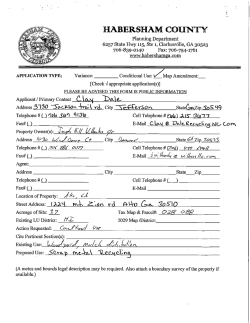 HABERSHAM COUNTY
Planning Department
6257 State Hwy 115, Ste 1, Clarksville, GA 30523
706-839-0140 Fax: 706-754-1761
www.habershamga.com
APPLICATION TYPE: Variance Conditional Use Map Amendment
[Check √ appropriate application(s)]
PLEASE BE ADVISED THIS FORM IS PUBLIC INFORMATION
Applicant / Primary Contact Clay Dale
Address 3730 Jackson trail rd. City Jefferson State Ga Zip 30549
Telephone # ( ) Cell Telephone #
Fax# ( ) E-Mail Clay @ Dale Recycling NC.com
Property Owner(s):
Address City State Zip
Telephone # ( ) Cell Telephone #
Fax# ( ) E-Mail
Agent:
Address City State Zip
Telephone # ( ) Cell Telephone # ( )
Fax# ( ) E-Mail
Location of Property:
Street Address: 1224 mt. Zion rd Alto Ga 30510
Acreage of Site: 17 Tax Map & Parcel#: 028 080
Existing LU District: 2029 Map District:
Action Requested: Conditional use
Cite Pertinent Section(s):
Existing Use: Wood yard, mulch distribution
Proposed Use: Scrap metal Recycling
(A metes and bounds legal description may be required. Also attach a boundary survey of the property if
available.)